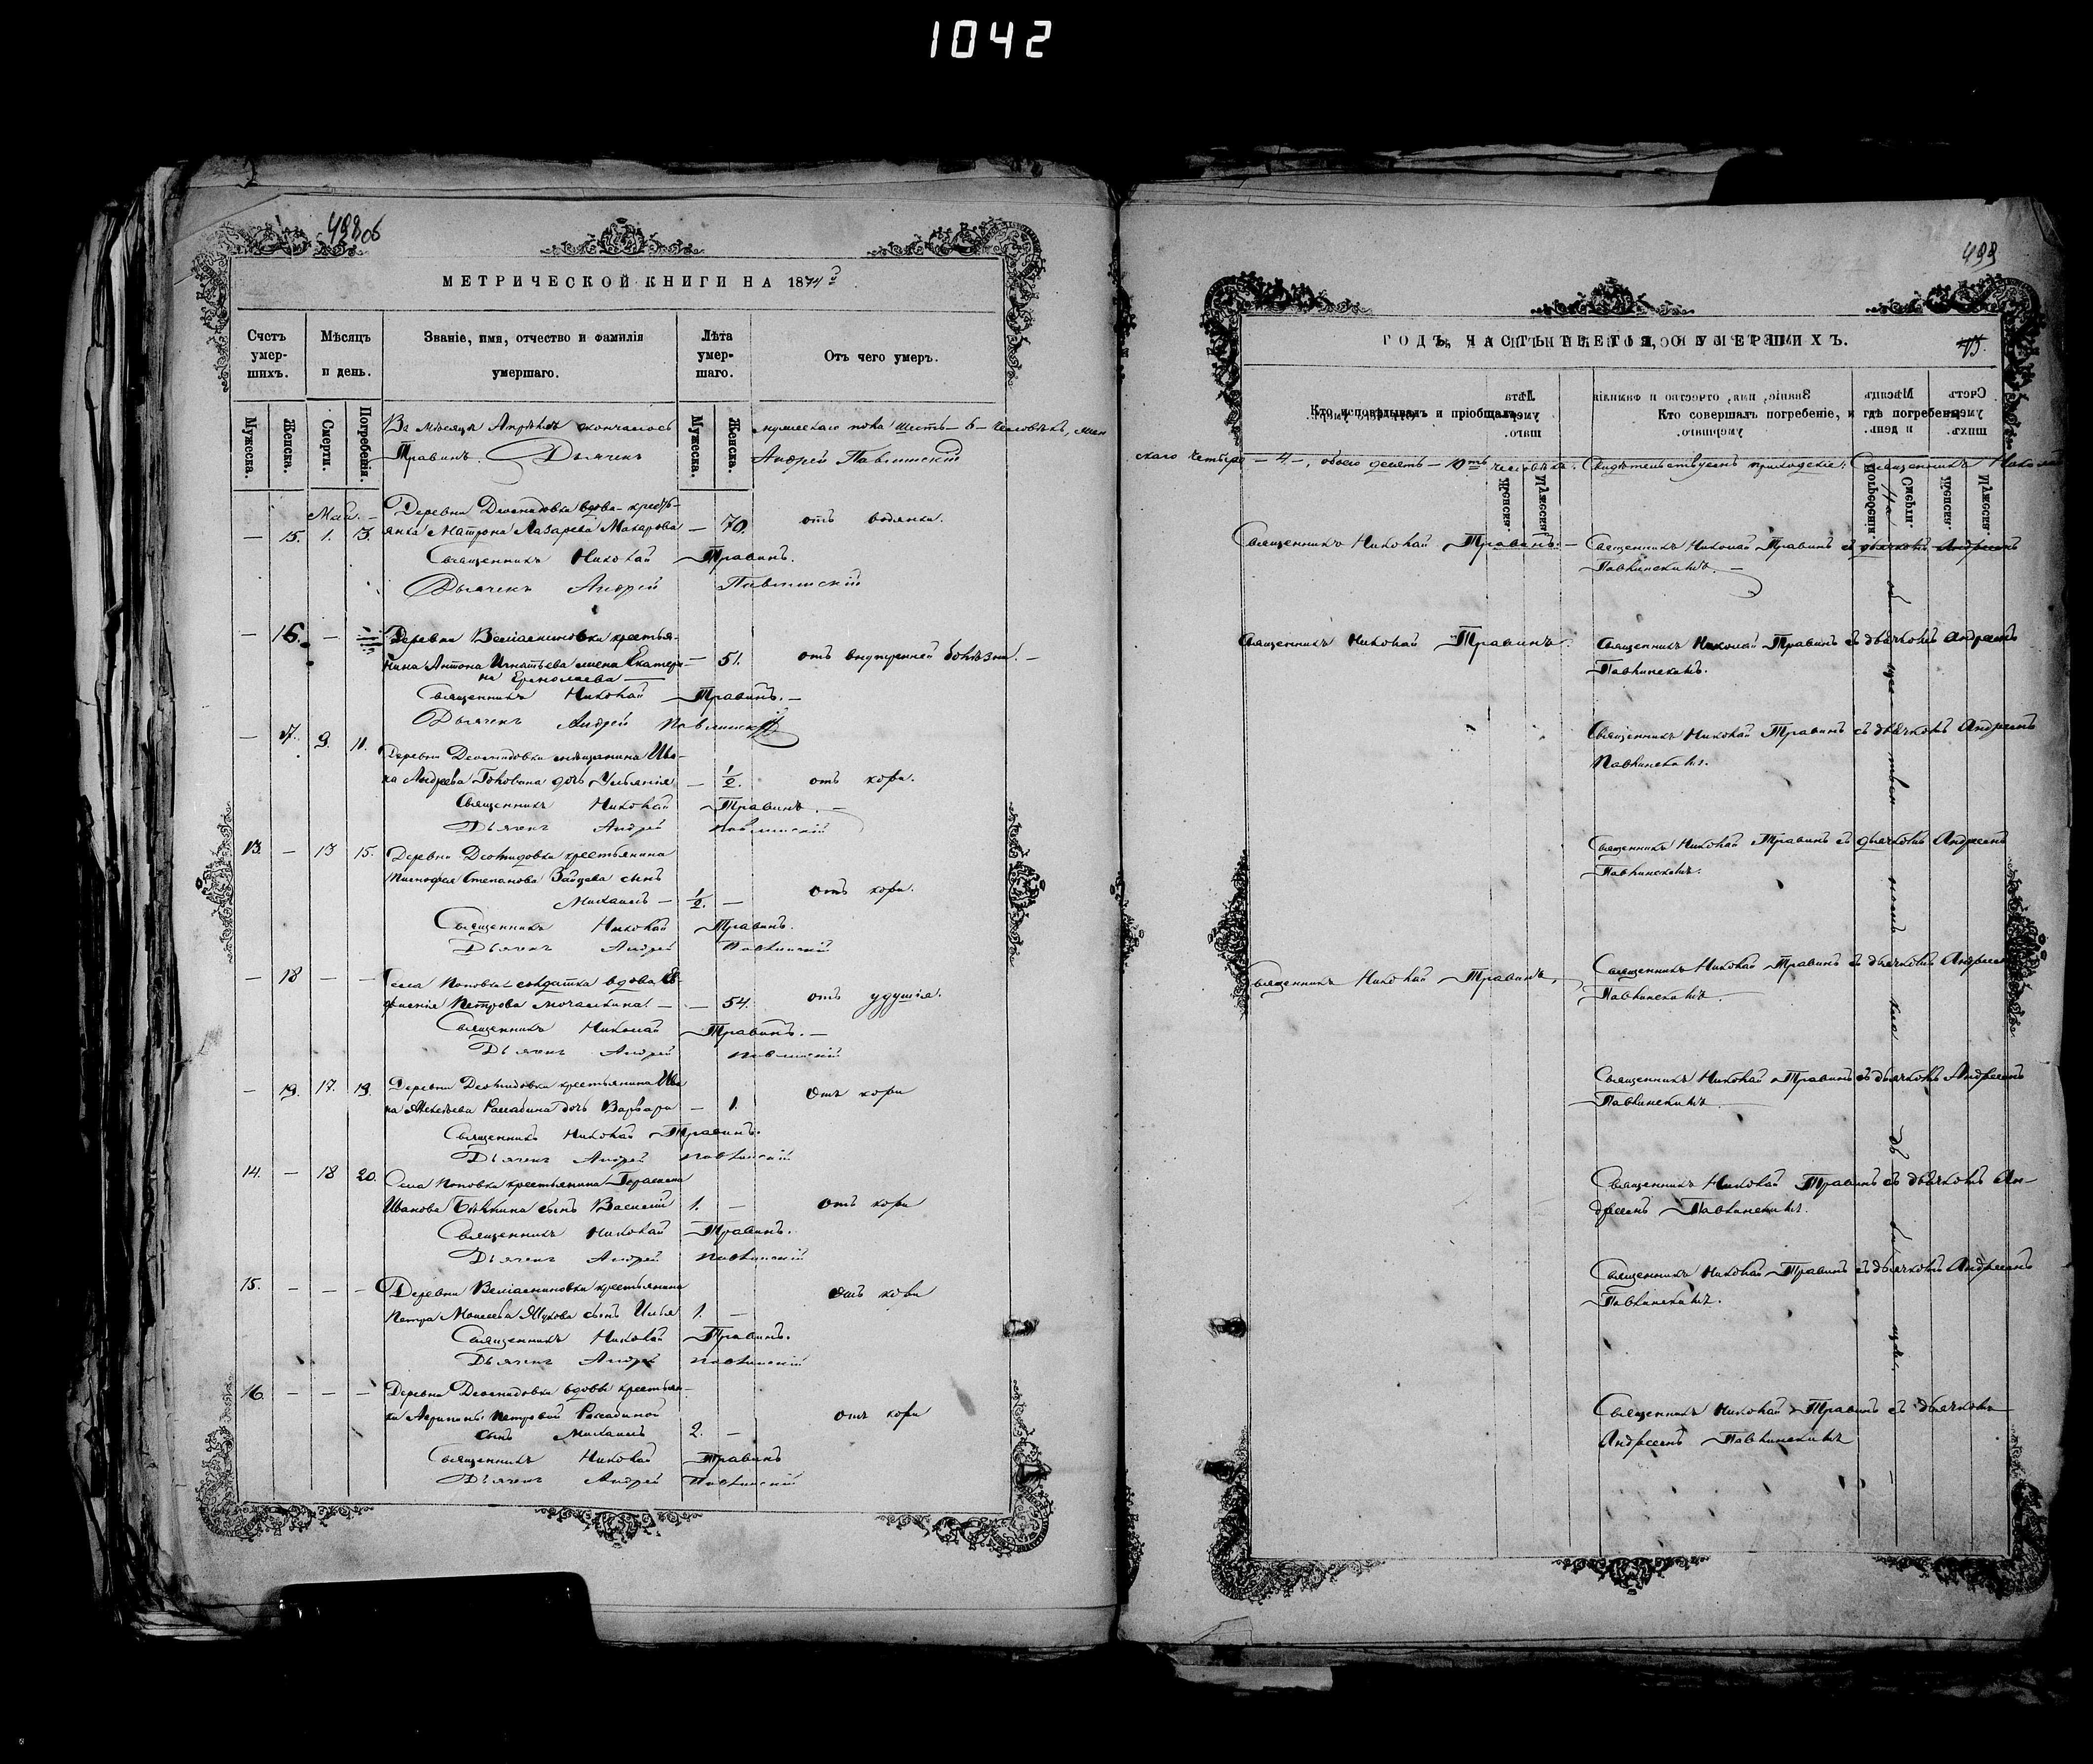 1042
498об
МЕТРИЧЕСКОЙ КНИГИ НА 1874
Счетъ умер-шихъ.
Мѣсяцъ и день.
Званіе, имя, отчество и фамилія умершаго.
Лѣта умер-шаго.
Отъ чего умеръ.
Мужеска. Женска. Смерти. Погребенія.
Мужеска. Женска.
Въ мѣсяцѣ Апрѣлѣ скончалось мужескаго пола шесть – 6 – человѣкъ, жен
Травинъ. Дьячекъ Андрей Павлинскій
Май.
Деревни вдова кресть-
– 15. 1. 13. янка Матрона Лазарева Макарова – 70. отъ водянки.
Священникъ Николай Травинъ.
Дьячекъ Андрей Павлинскій
– 16. – Деревни крестья-
нина Антона Игнатьева жена Екатери- – 51. отъ внутренней болѣзни. –
на Ермолаева
Священникъ Николай Травинъ. –
Дьячекъ Андрей Павлинскій
– 17. 9. 11.
Деревни мѣщанина Ива-
на Андреева дочь – 1/2. отъ кори.
Священникъ Николай Травинъ. –
Дьячекъ Андрей Павлинскій
13. – 13 15. Деревни крестьянина
Степанова Зайцева сынъ
Михаилъ – 1/2. – отъ кори.
Священникъ Николай Травинъ.
Дьячекъ Андрей Павлинскій
– 18 – – Села Поповки солдатка вдова Ев-
Петрова – – 54. отъ удушья.
Священникъ Николай Травинъ. –
Дьячекъ Андрей Павлинскій
– 19. 17. 19. Деревни крестьянина Ива
на Алексѣева дочь Варвара – 1. Отъ кори
Священникъ Николай Травинъ.
Дьячекъ Андрей Павлинскій
14. – 18 20. Села Поповки крестьянина Герасима
Иванова сынъ Василій 1. – Отъ кори
Священникъ Николай Травинъ.
Дьячекъ Андрей Павлинскій
15. – – – Деревни крестьянина
Петра Моисеева сынъ Илья 1. – Отъ кори
Священникъ Николай Травинъ.
Дьячекъ Андрей Павлинскій
16. – – – Деревни вдовы крестьян-
ки Петровой
сынъ Михаилъ 2. – Отъ кори
Священникъ Николай Травинъ
Дьячекъ Андрей Павлинскій
499
ГОДЪ, ЧАСТЬ ТРЕТЬЯ, О УМЕРШИХЪ.
Кто исповѣдывалъ и пріобщалъ.
Кто совершалъ погребеніе, и гдѣ погребены.
скаго четыре – 4 –, обоего десять – 10ть человѣкъ. Свидѣтельствуемъ приходскіе: Священникъ Николай
Священникъ Николай Травинъ. – Священникъ Николай Травинъ съ дьячкомъ Андреемъ
Павлинскимъ. –
Священникъ Николай Травинъ. Священникъ Николай Травинъ съ дьячкомъ Андреемъ
Павлинскимъ.
Священникъ Николай Травинъ съ дьячкомъ Андреемъ
Павлинскимъ.
Священникъ Николай Травинъ съ дьячкомъ Андреемъ
Павлинскимъ.
Священникъ Николай Травинъ, Священникъ Николай Травинъ съ дьячкомъ Андреемъ
Павлинскимъ.
Священникъ Николай Травинъ съ дьячкомъ Андреемъ
Павлинскимъ
Священникъ Николай Травинъ съ дьячкомъ Ан-
дреемъ Павлинскимъ.
Священникъ Николай Травинъ съ дьячкомъ Андреемъ
Павлинскимъ.
Священникъ Николай Травинъ съ дьячкомъ
Андреемъ Павлинскимъ
На общественномъ кладбищѣ.